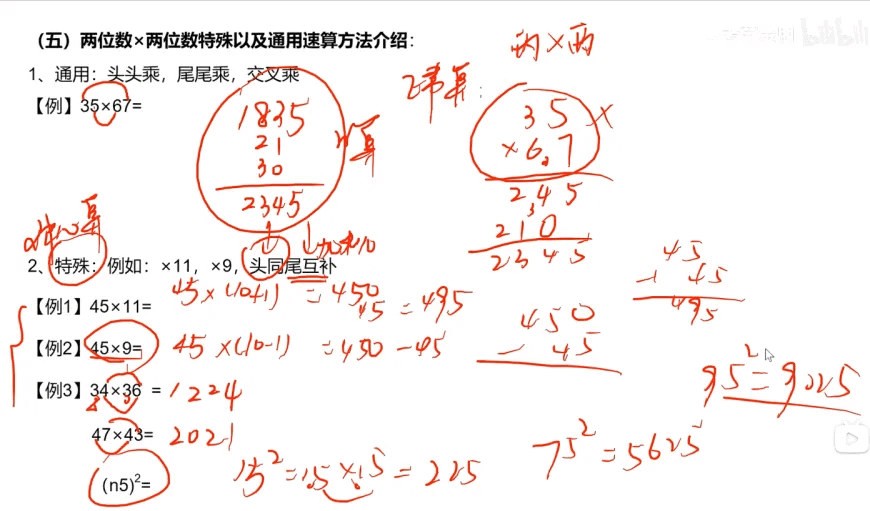 （五）两位数×两位数特殊以及通用速算方法介绍：
两×两
1、通用：头头乘，尾尾乘，交叉乘
【例】35×67=
1835
21
30
2345
35
×67
245
210
2345
2、特殊：例如：×11，×9，头同尾互补
【例1】45×11= 45×(10+1) =450
45 =495
45
45
495
【例2】45×9= 45×(10-1) =450-45
450
-45
【例3】34×36 =1224
95²=9025
47×43= 2021
(n5)²=
15²=15×15=225
75²=5625
bilibili